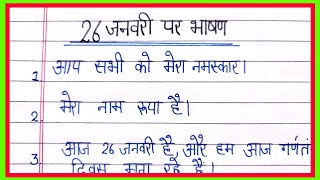 26 जनवरी पर भाषण
1. आप सभी को मेरा नमस्कार।
2. मेरा नाम रूपा है।
3. आज 26 जनवरी है, और हम आज गणतं
दिवस मना रहे है।